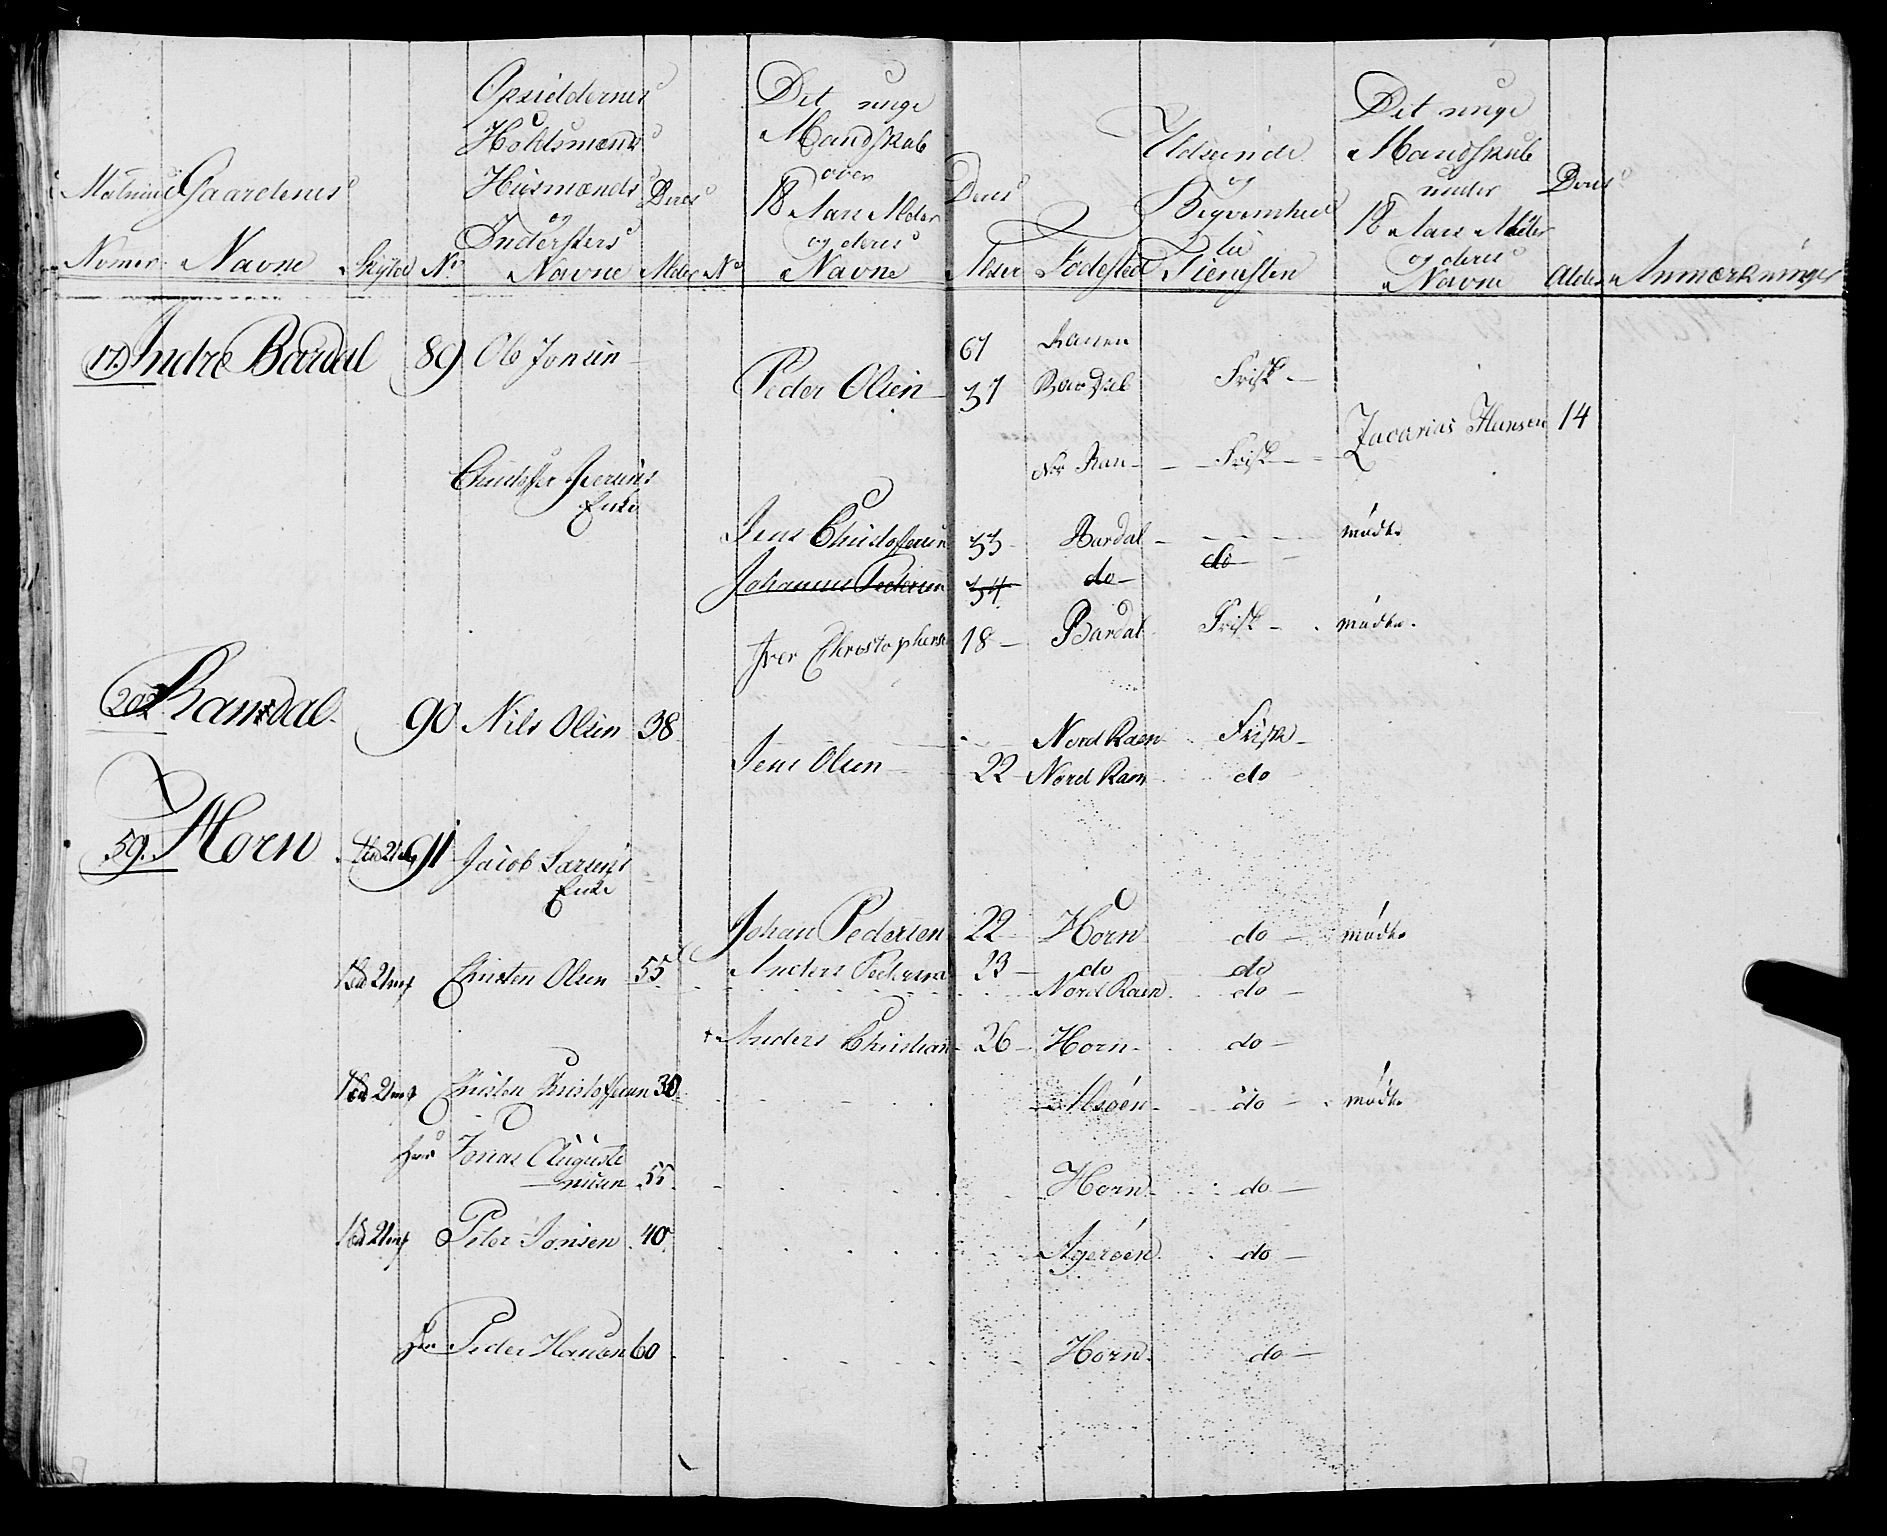 Matricul Nomer
Gaardenes Navne
Skyld
No
Opsiddernes Hohlsmænds Huusmænds og Indersters Navne
Deres Alder
No
Det unge Mandskab over 18 Aars Alder og deres Navne
Deres Alder
Fødested
Udseende og Beqvemhed til Tienesten
Det unge Mandskab under 18 Aars Alder og deres Navne
Deres Alder
Anmærkninger
17. Indre Bardal 89 Ole Jonsen 67 Ranen
Peder Olsen 37 Bardal Frisk
Zacarias Hansen 14
Christopher Iversens Enke Nor Ran Frisk
Jens Christophersen 33 Bardal mødte
Johannes Pedersen 34 do do
Iver Christophersen 18 Bardal Frisk mødte.
202 Ramsdal 90 Nils Olsen 38 Nord Raen Frisk
Jens Olsen 22 Nord Raen do
59. Horn 91 Jacob Larsens Enke
Johan Pedersen 22 Horn do mødte
Anders Pedersen 23 do do
Christen Olsen 55 Nord Raen do
† Anders Christian 26 Horn do
Christen Christophersen 30 Alsøen do mødte
Jonas Augustinusen 55 Horn do
Peter Jonsen 40 Agerøen do
Peder Hansen 60 Horn do